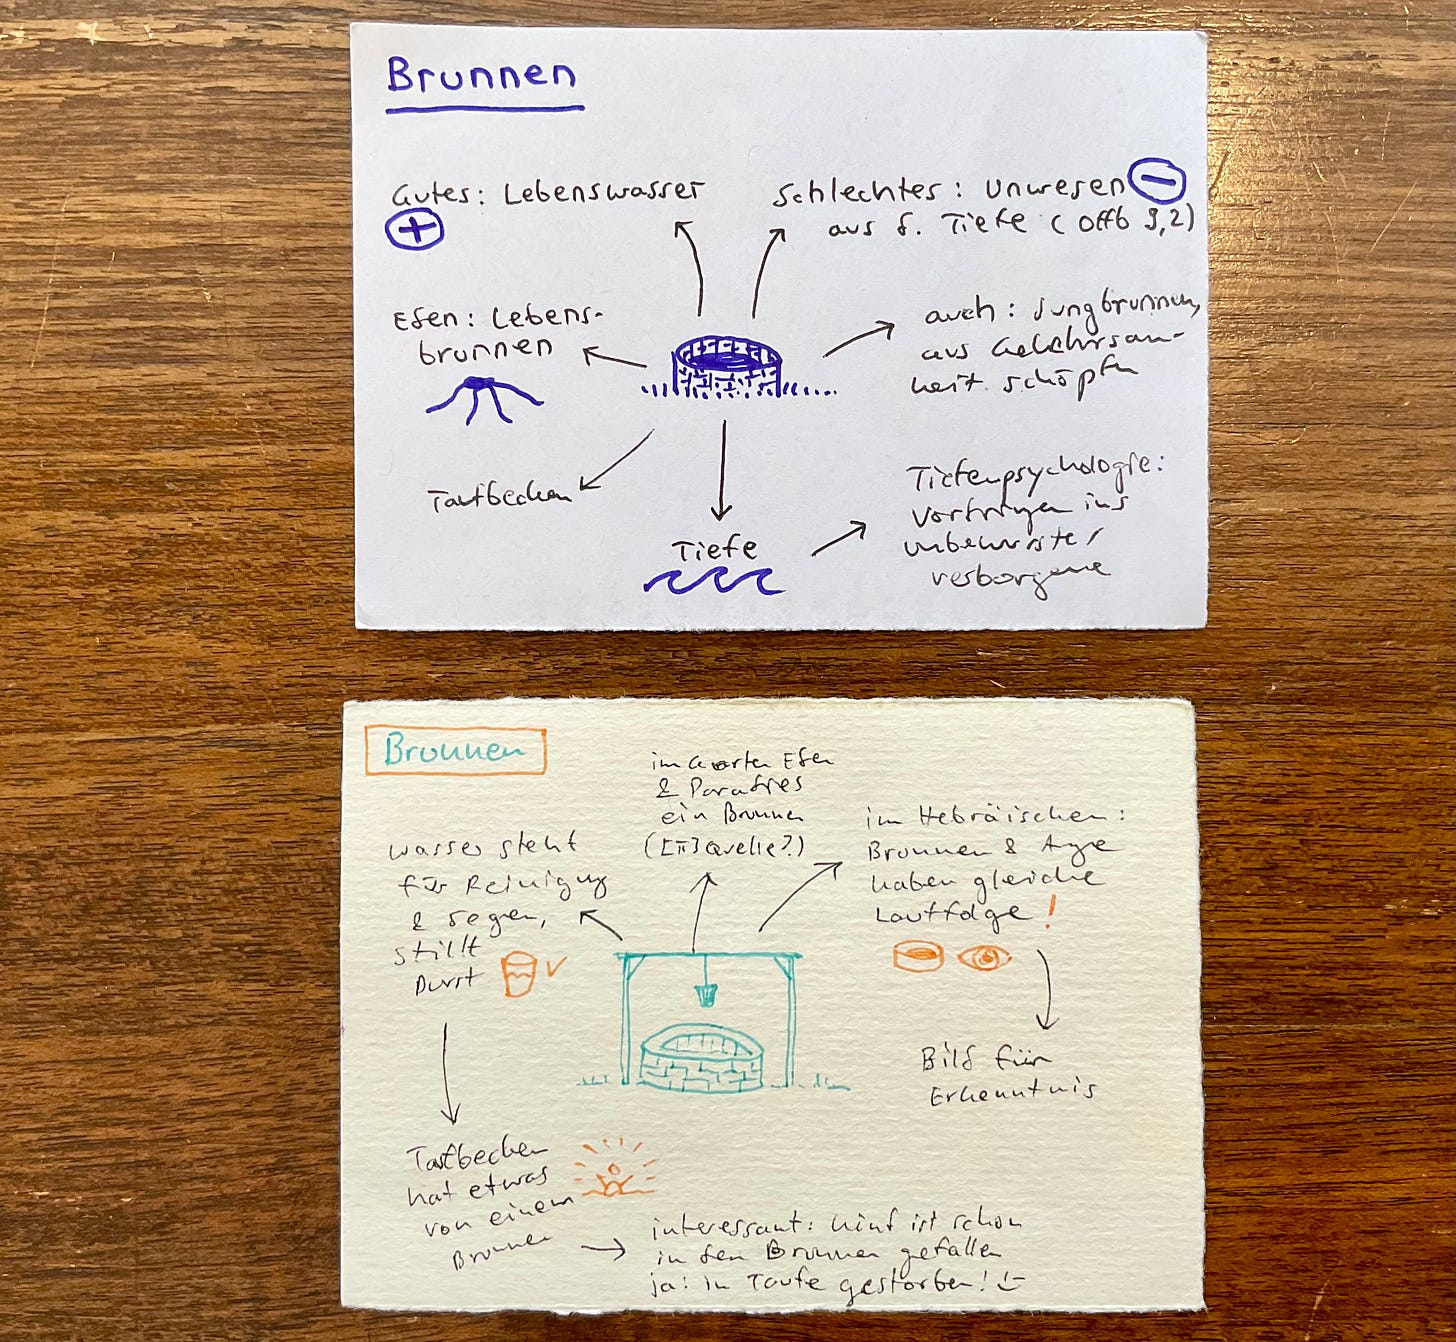 Brunnen
Gutes: Lebenswasser
+
Schlechtes: Unwesen –
aus d. Tiefe (Offb 9,2)
Eden: Lebens-
brunnen
auch: Jungbrunnen,
aus Gelehrsam-
keit schöpfen
Taufbecken
Tiefe
Tiefenpsychologie:
Vordringen ins
Unbewusste/
Verborgene
Brunnen
im Garten Eden
& Paradies
ein Brunnen
Quelle?)
im Hebräischen:
Brunnen & Auge
haben gleiche
Lautfolge!
Wasser steht
für Reinigung
& Segen,
stillt
Durst
Bild für
Erkenntnis
Taufbecken
hat etwas
von einem
Brunnen
interessant: Kind ist schon
in den Brunnen gefallen
ja: in Taufe gestorben!